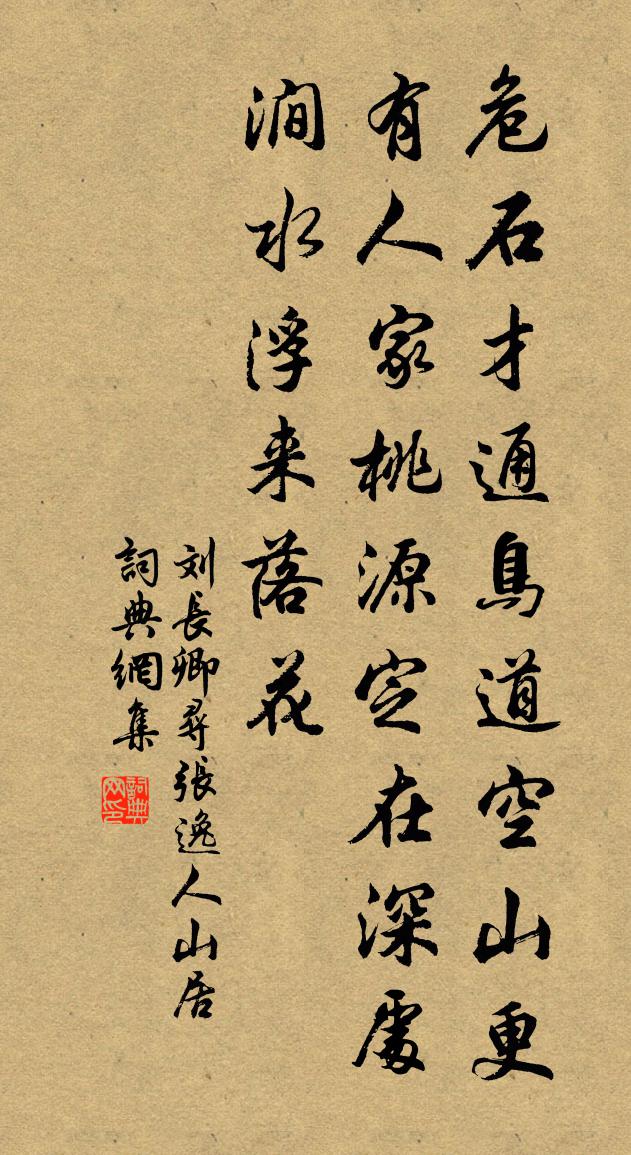 危石才通鳥道空山更
有人家桃源定在深處
澗水浮来落花
刘長卿尋張逸人山居
詞典網集
詞典网印